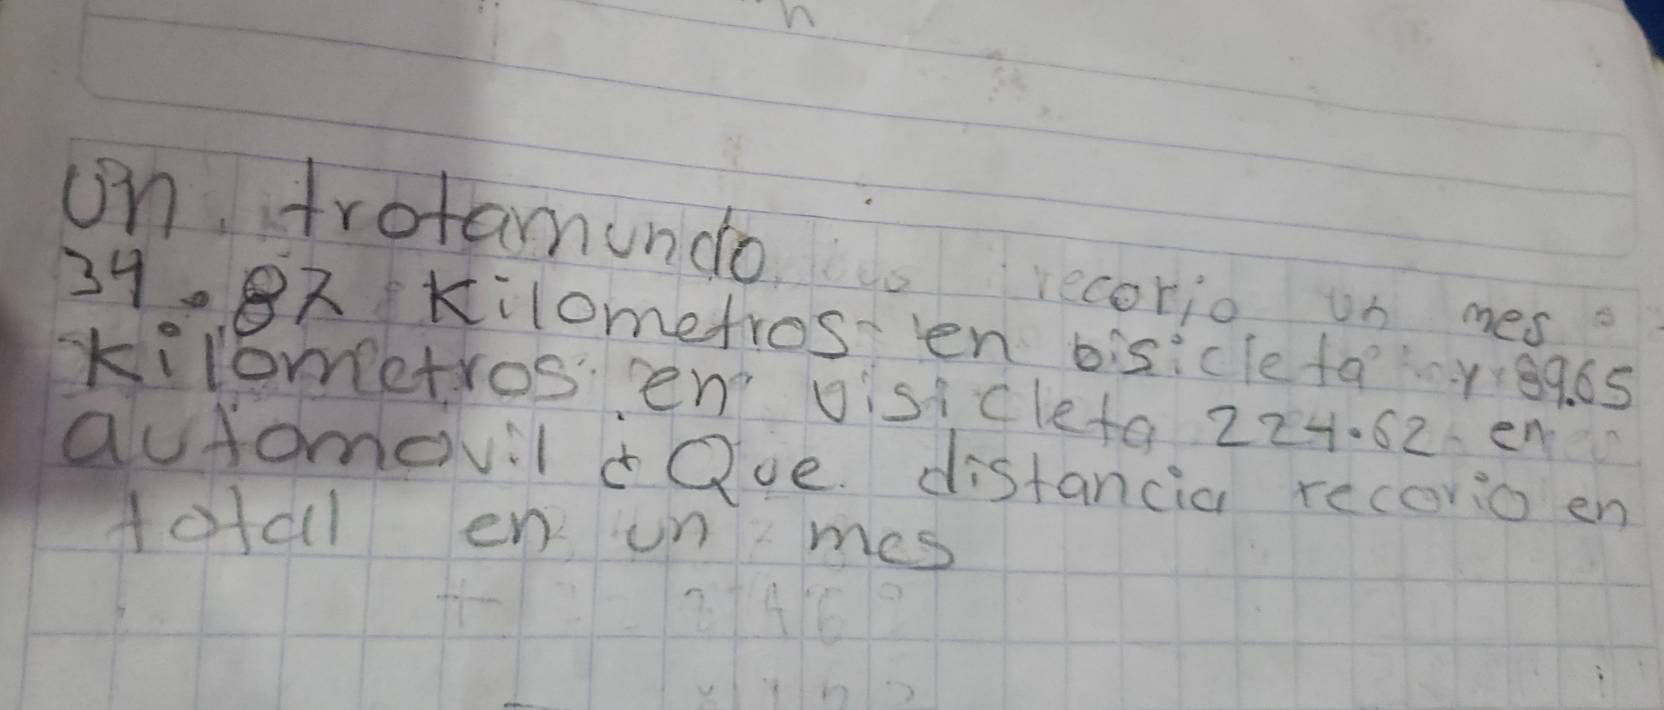 un trotamundo recorio un mes
34.87 Kilometros en bisicleta y 89.65
Kilometros en visicleta 224.62 en
automovil ¿Que distancia recorio en
total en un mes